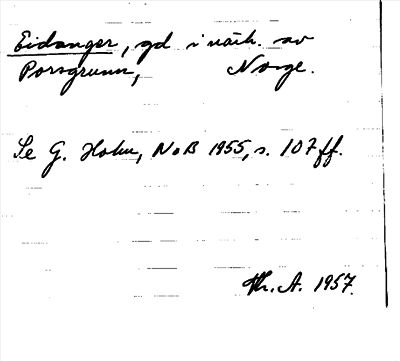 Eidanger, gd i närh. av
Porsgrunn, Norge.
Se G. Holm, NoB 1955, s. 107 ff.
Th. A. 1957.